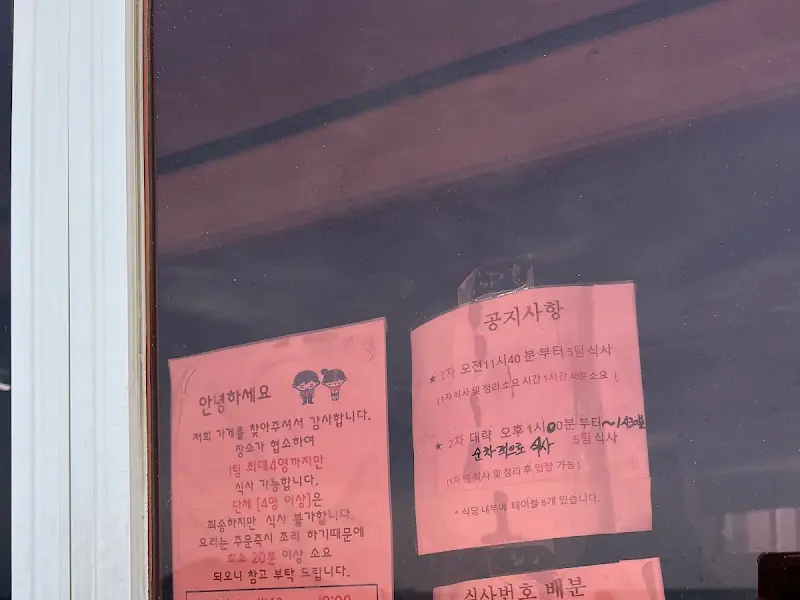 안녕하세요
저희 가게를 찾아주셔서 감사합니다.
장소가 협소하여
1팀 최대4명까지만
식사 가능합니다.
단체 [4명 이상]은
죄송하지만 식사 불가합니다.
요리는 주문즉시 조리 하기때문에
최소 20분 이상 소요
되오니 참고 부탁 드립니다.
공지사항
★ 1차 오전11시40분부터 5팀 식사
(1차 식사 및 정리 소요 시간 1시간 40분 소요)
★ 2차 대략 오후 1시00분 부터~
순차적으로 식사 5팀식사
(1차 팀 식사 및 정리 후 입장 가능)
* 식당 내부에 테이블 5개 있습니다.
식사번호 배분